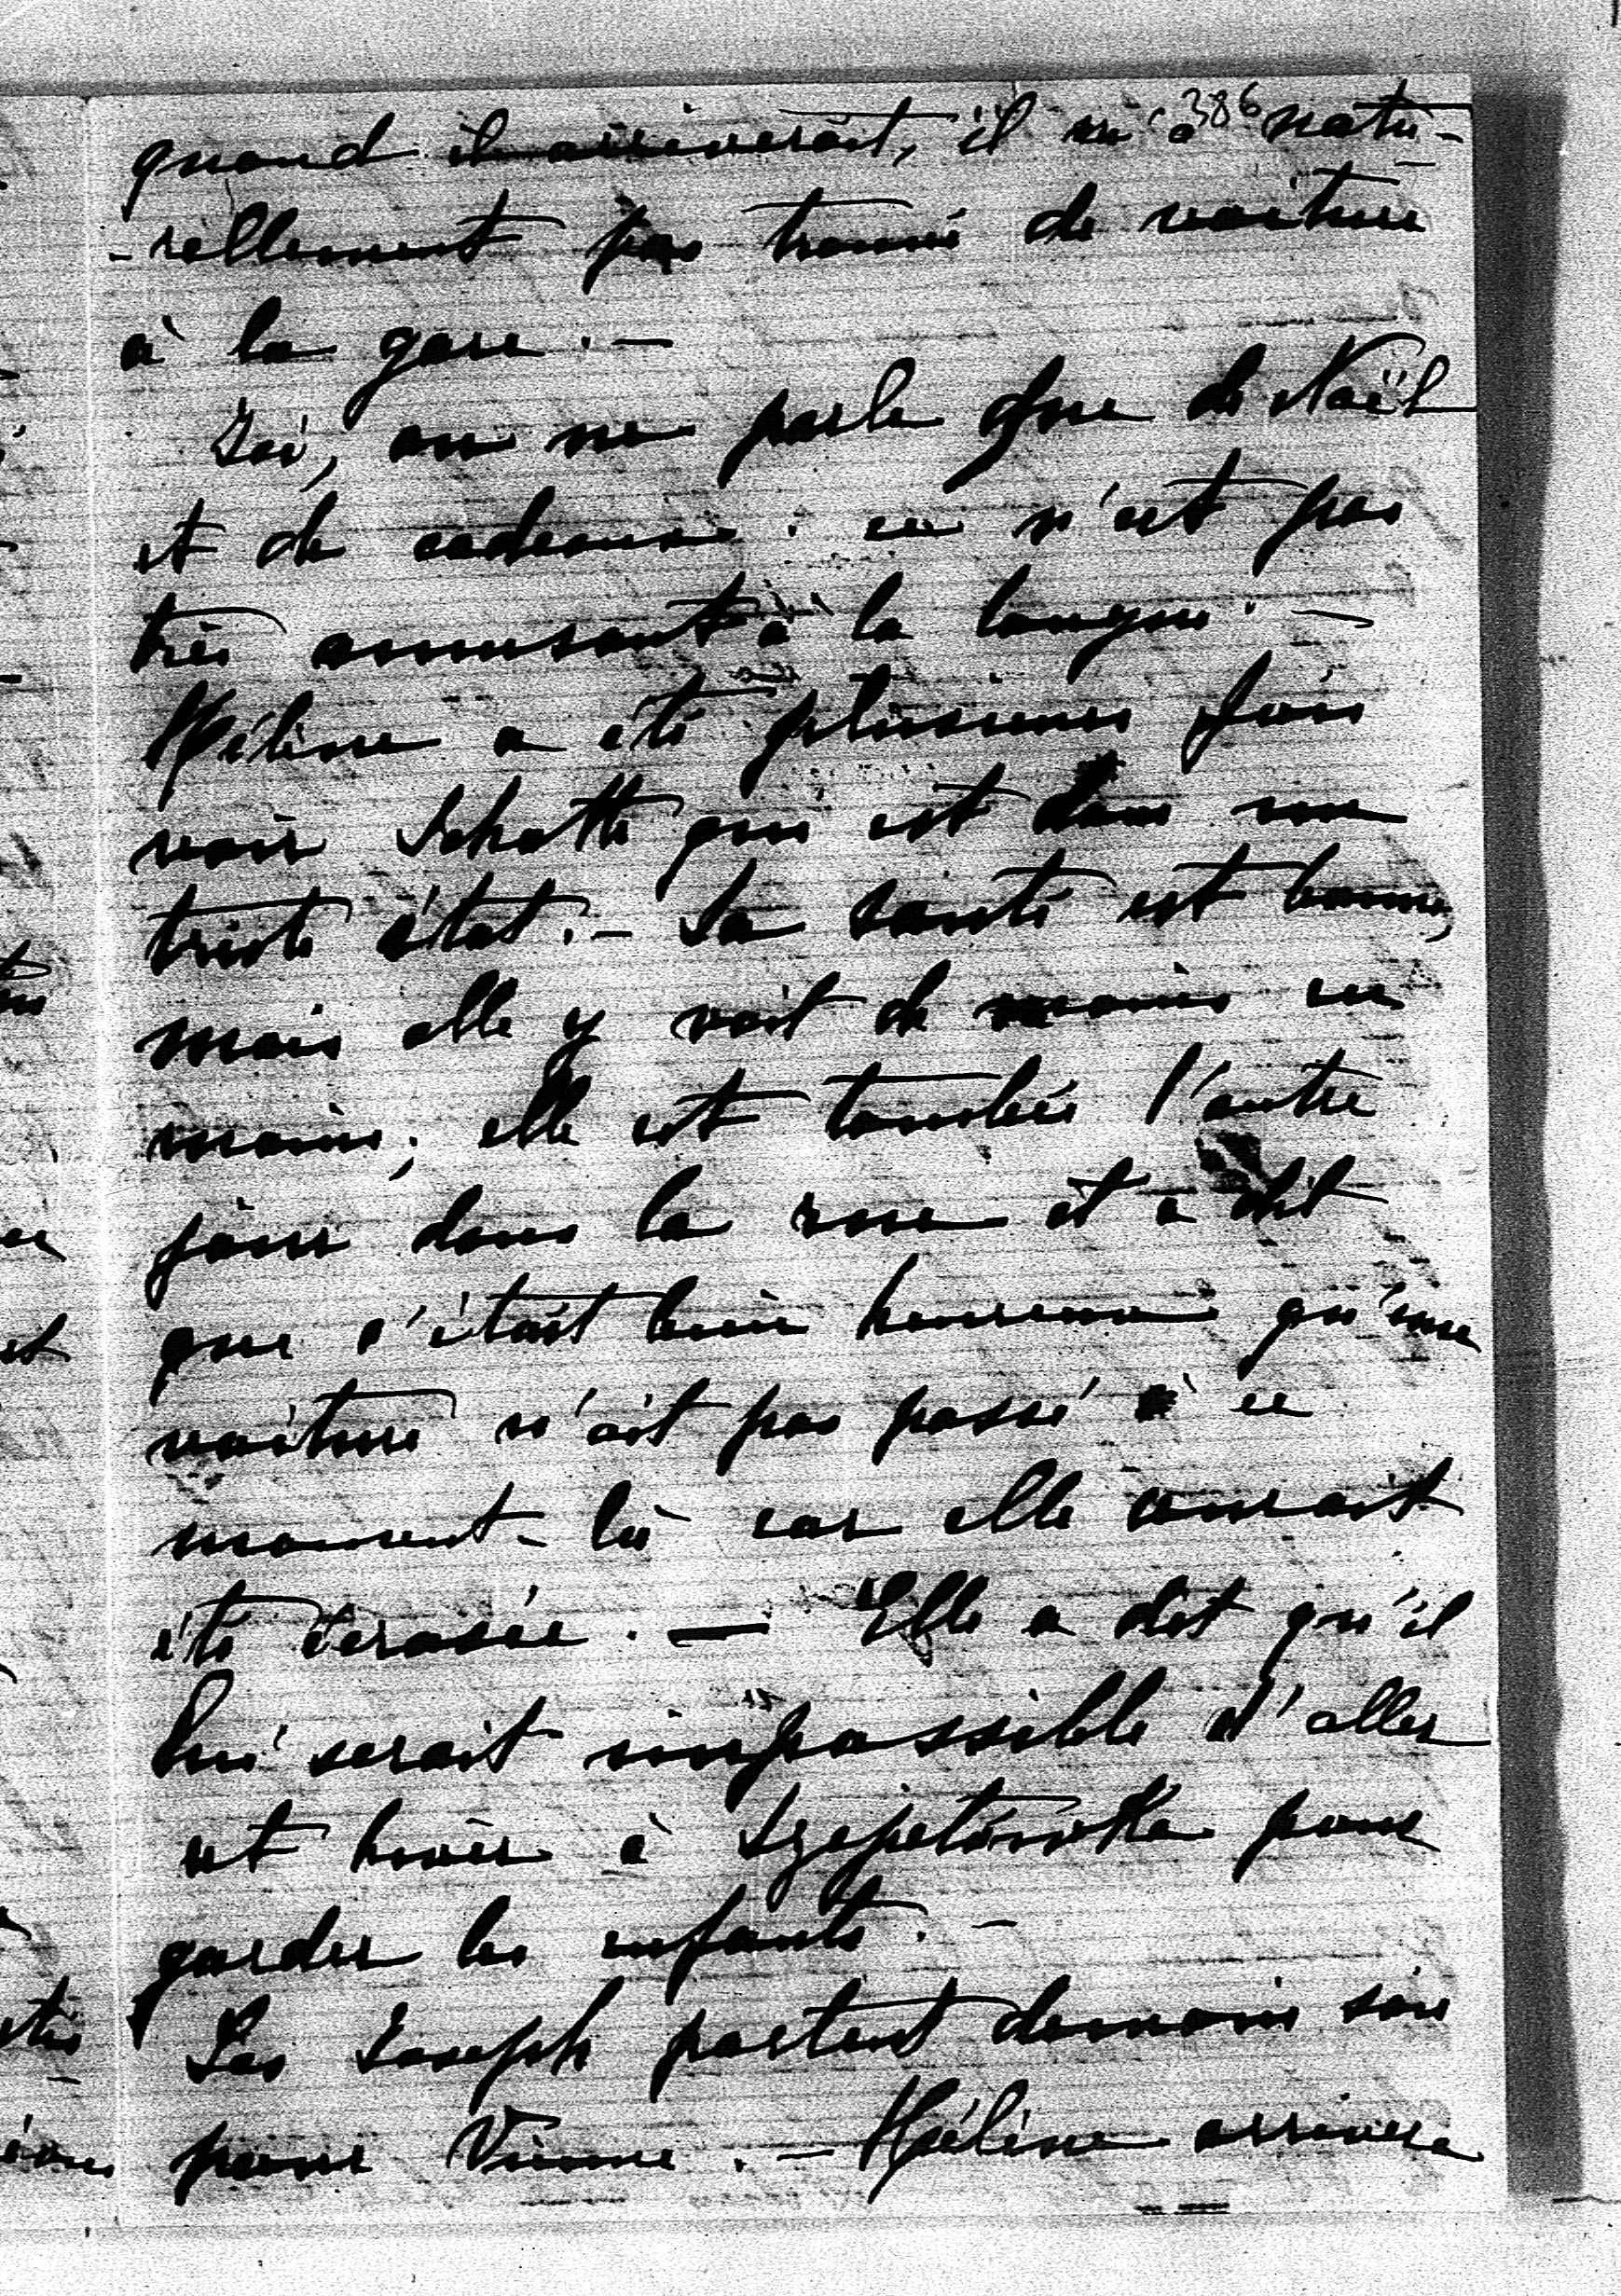 386
quand il arriverait, il n'a natu-
-rellement pas trouvé de voiture
à la gare. —
Ici, on ne parle que de Noël
et de cadeaux : ce n'est pas
très amusant à la longue. —
Hélène a été plusieurs fois
voir Schotte qui est dans un
triste état. — Sa santé est bonne,
mais elle y voit de moins en
moins ; elle est tombée l'autre
jour dans la rue et a dit
que c'était bien heureux qu'une
voiture n'ait pas passé à ce
moment-là car elle aurait
été écrasée. — Elle a dit qu'il
lui serait impossible d'aller
cet hiver à Szepetówka pour
garder les enfants. —
Les Joseph partent demain soir
pour Vienne. — Hélène arrivera